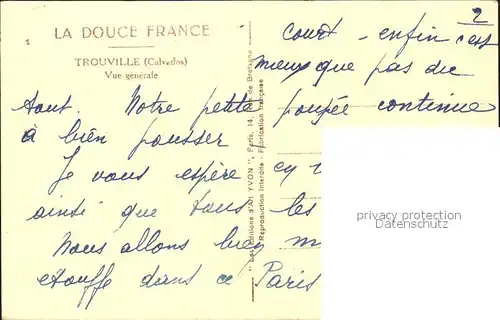 LA DOUCE FRANCE
1
TROUVILLE (Calvados)
Vue générale
2
tout. Notre petite
à bien pousser
Je vous espère
ainsi que tous
Nous allons bien
étouffe dans ce Paris
"Les Editions d'Art YVON", Paris, 14, de Bretagne
Reproduction Interdite - Fabrication française
court - enfin c'est
mieux que pas du
poupée continue
en
les
m
privacy protected
Datenschutz